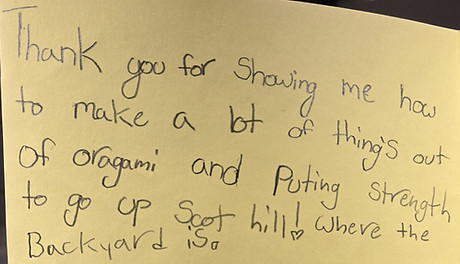 Thank you for showing me how
to make a lot of thing's out
of oragami and Puting strength
to go up Scot hill! where the
Backyard is.